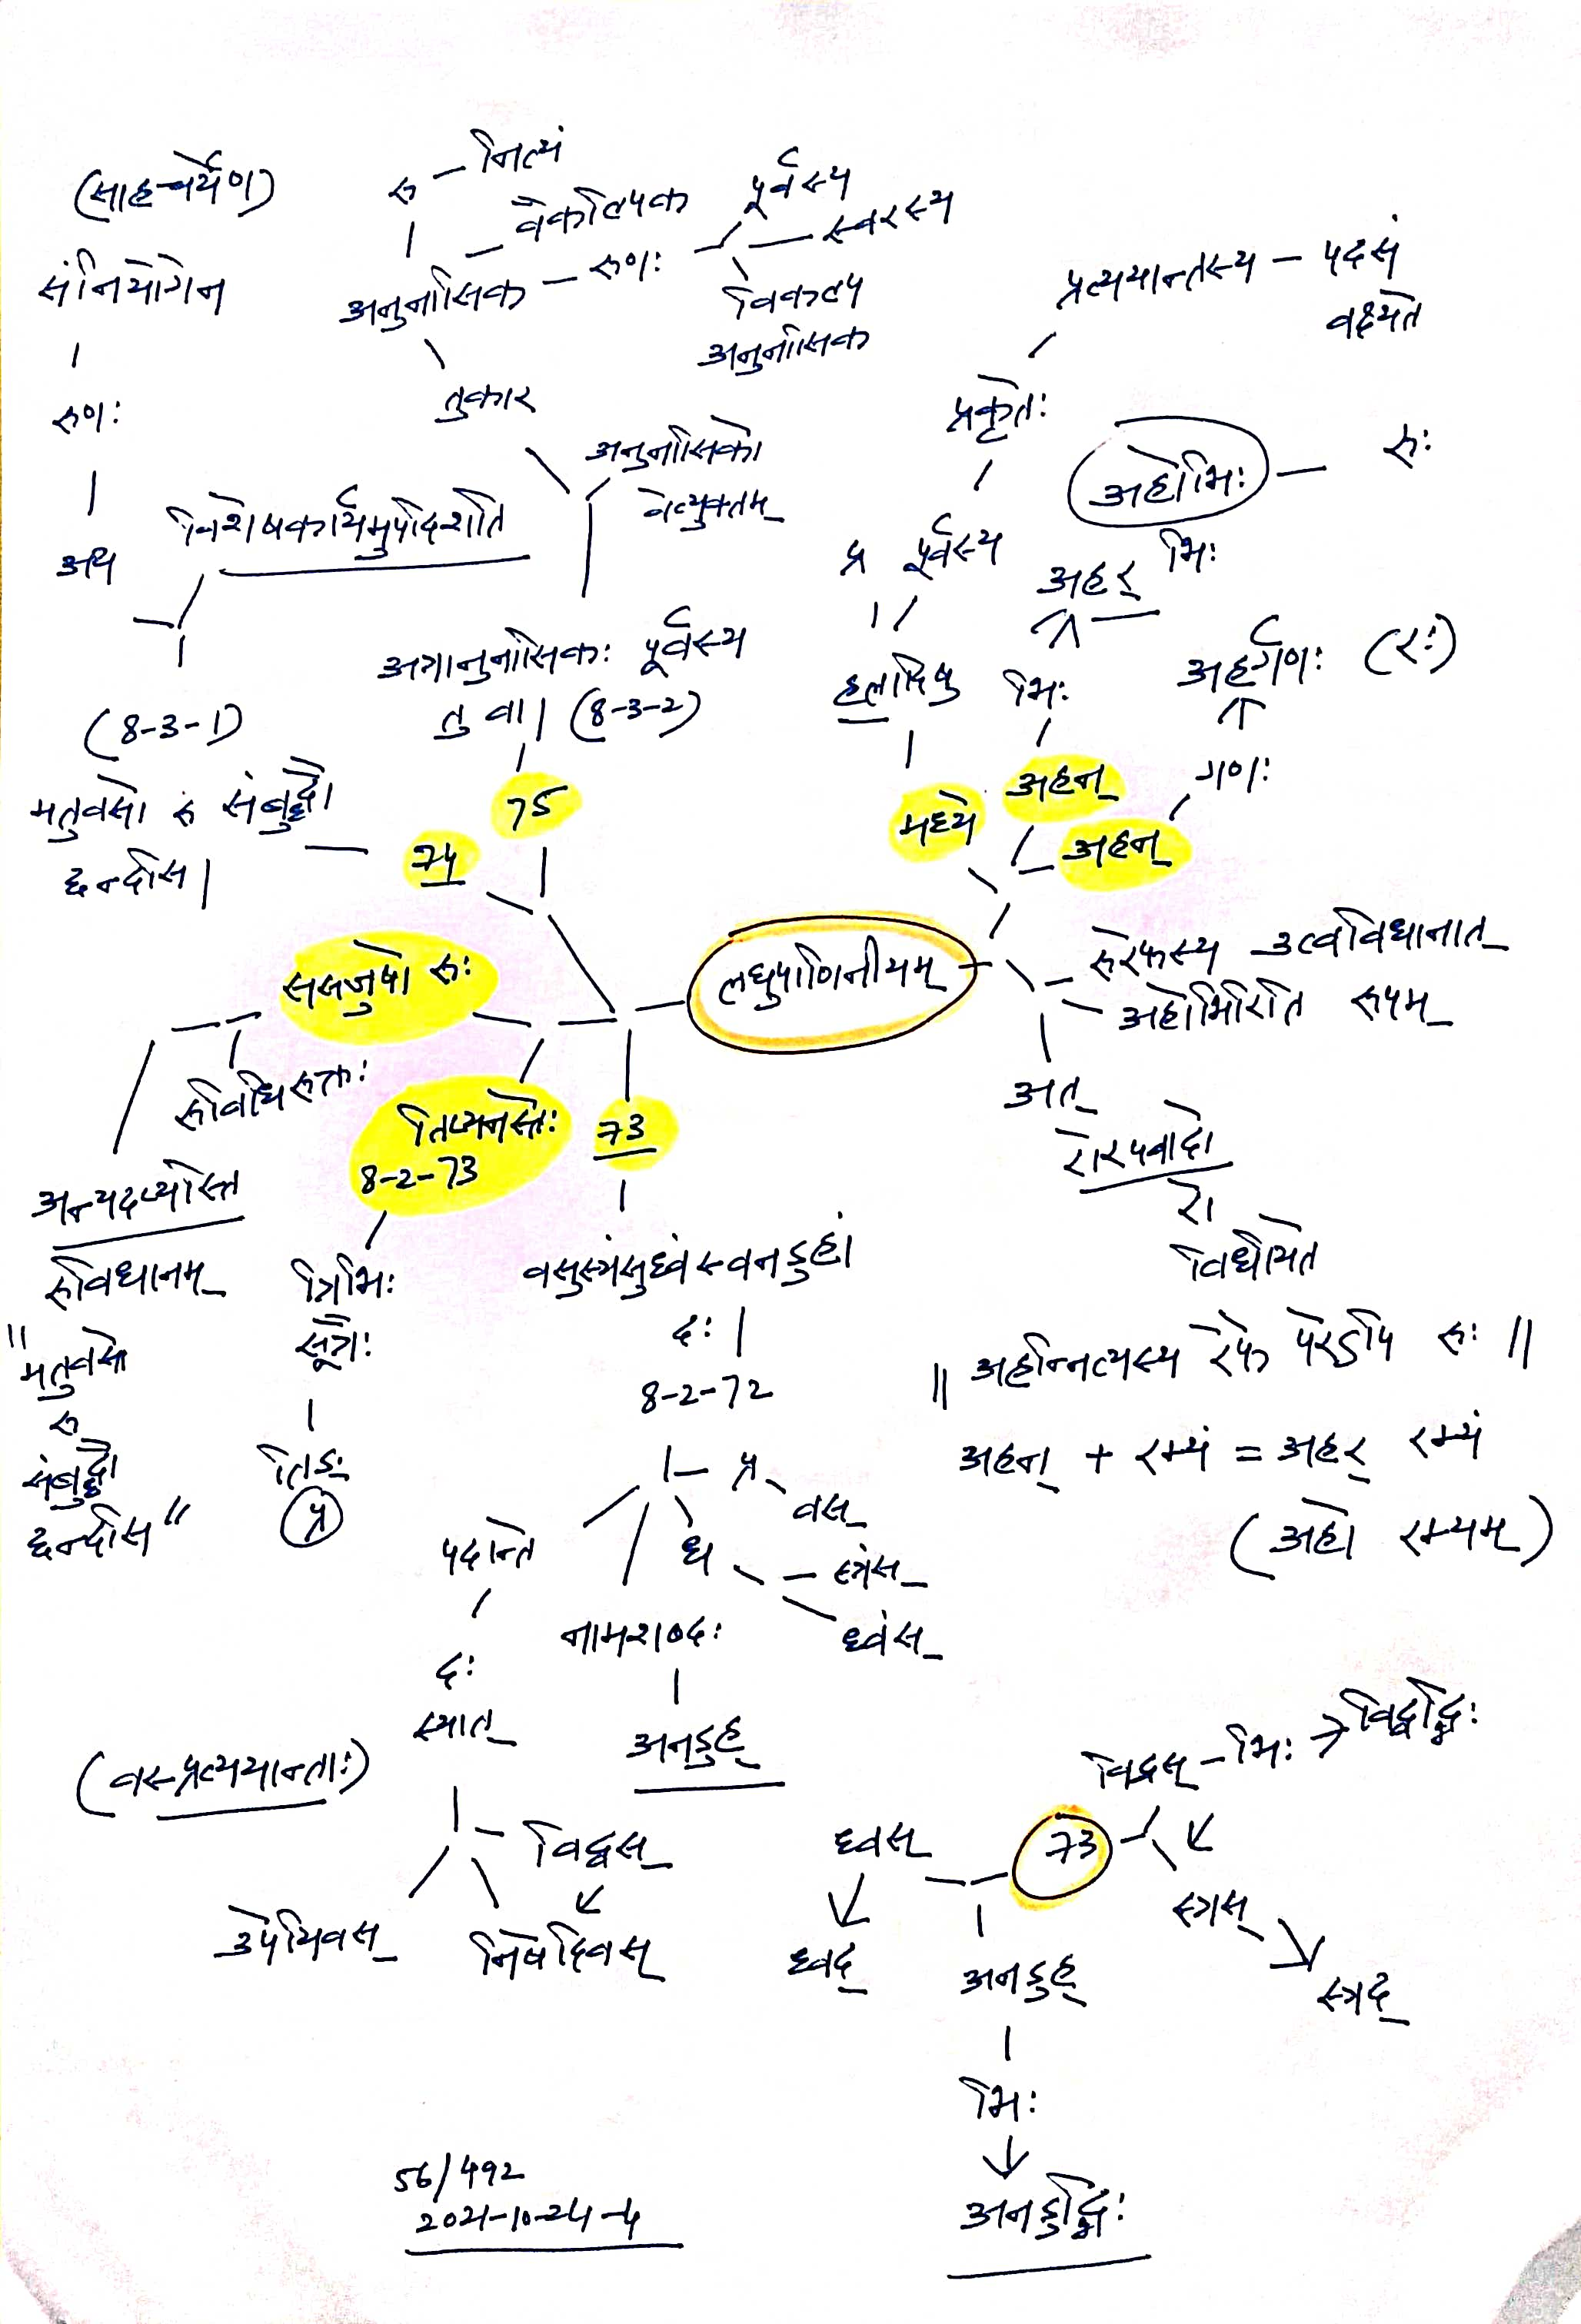 (साहचर्येण)
संनियोगेन
रुणः
अथ
विशेषकार्यमुपदिशति
(8-3-1)
मतुवसो रु संबुद्धौ
छन्दसि।
रु - नित्यं
वैकल्पिक
अनुनासिक - रुणः
तुकार
पूर्वस्य
स्वरस्य
विकल्प
अनुनासिक
अनुनासिको
वेत्युक्तम्
अत्रानुनासिकः पूर्वस्य
तु वा। (8-3-2)
75
74
प्रत्ययान्तस्य - पदसं
वक्ष्यते
प्रकृतेः
पूर्वस्य
प्र
हलादिषु
मध्ये
अहोभिः - रुः
अहर् भिः
भिः
अहन्
अहर्गणः (रः)
गणः
अहन्
लघुपाणिनीयम्
रुरेफस्य उत्वविधानात्
अहोभिरिति रूपम्
अत्
रोरपवादो
रो
विधीयते
ससजुषो रुः
रुविधिरुक्तः
तिप्यनस्तेः
8-2-73
73
अन्यदप्यस्ति
रुविधानम्
"मतुवसो
रु
संबुद्धौ
छन्दसि"
त्रिभिः
सूत्रैः
तिङः
प्र
वसुस्रंसुध्वंस्वनडुहां
दः।
8-2-72
प्र
वस्
पदान्ते
ध
स्रंस्
ध्वंस्
नामशब्दः
अनडुह्
दः
स्यात्
(वस्प्रत्ययान्ताः)
विद्वस्
उपेयिवस्
निषेदिवस्
॥ अहन्नित्यस्य रेफे परेऽपि रुः ॥
अहन् + रम्यं = अहर् रम्यं
(अहो रम्यम्)
विद्वस् - भिः → विद्वद्भिः
ध्वस्
73
स्रस्
ध्वद्
अनडुह्
स्रद्
भिः
अनडुद्भिः
56/492
2021-10-24-4